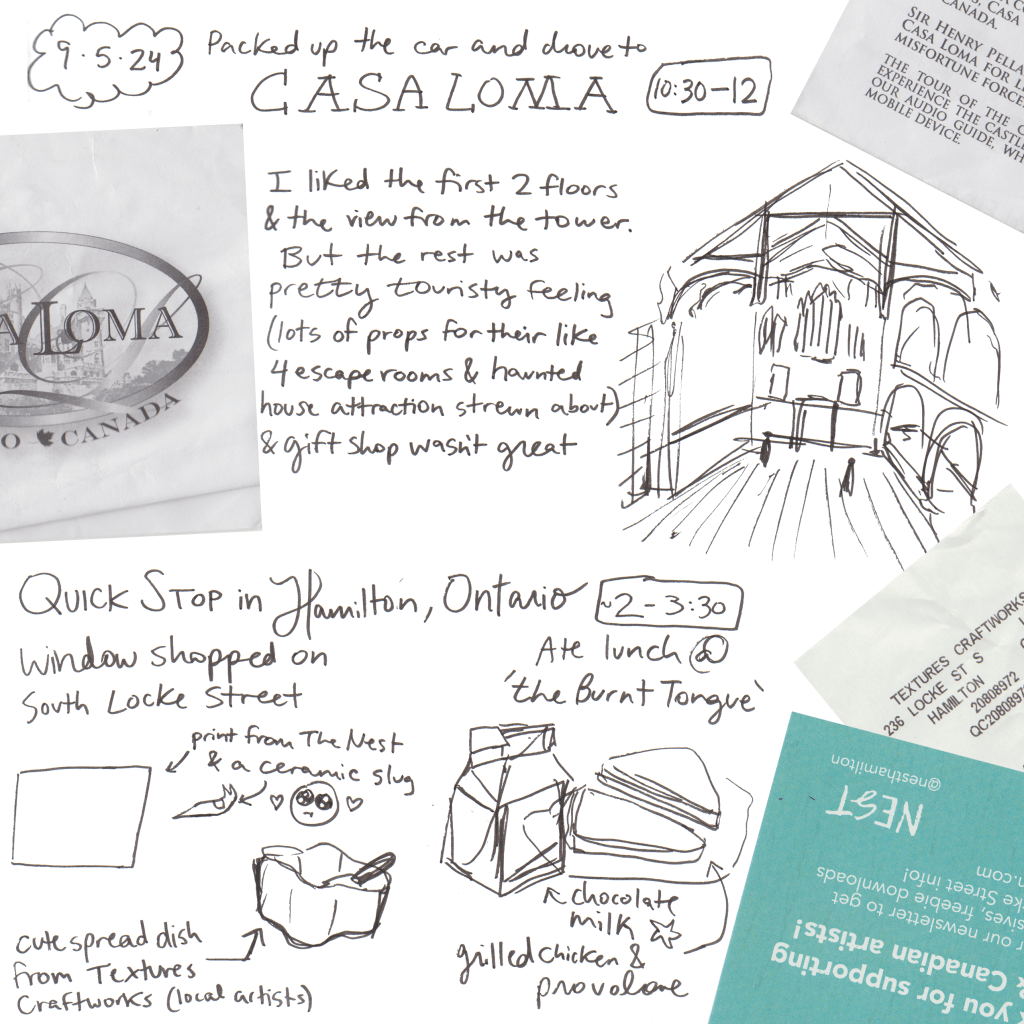 9.5.24
Packed up the car and drove to
CASA LOMA
10:30-12
, CASA
CANADA.
SIR HENRY PELLA
CASA LOMA FOR L
MISFORTUNE FORCE
THE TOUR OF THE C
EXPERIENCE THE CASTL
OUR AUDIO GUIDE, WH
MOBILE DEVICE.
A LOMA
O CANADA
I liked the first 2 floors
& the view from the tower.
But the rest was
pretty touristy feeling
(lots of props for their like
4 escape rooms & haunted
house attraction strewn about)
& gift shop wasn't great
QUICK STOP in Hamilton, Ontario
~2-3:30
window shopped on
South Locke Street
Ate lunch @
'the Burnt Tongue'
print from The Nest
& a ceramic slug
cute spread dish
from Textures
Craftworks (local artists)
chocolate
milk
grilled chicken &
provolone
TEXTURES CRAFTWORKS
236 LOCKE ST S
HAMILTON
20808972
QC2080897
you for supporting
Canadian artists!
our newsletter to get
sives, freebie downloads
ke Street info!
n.com
NEST
@nesthamilton